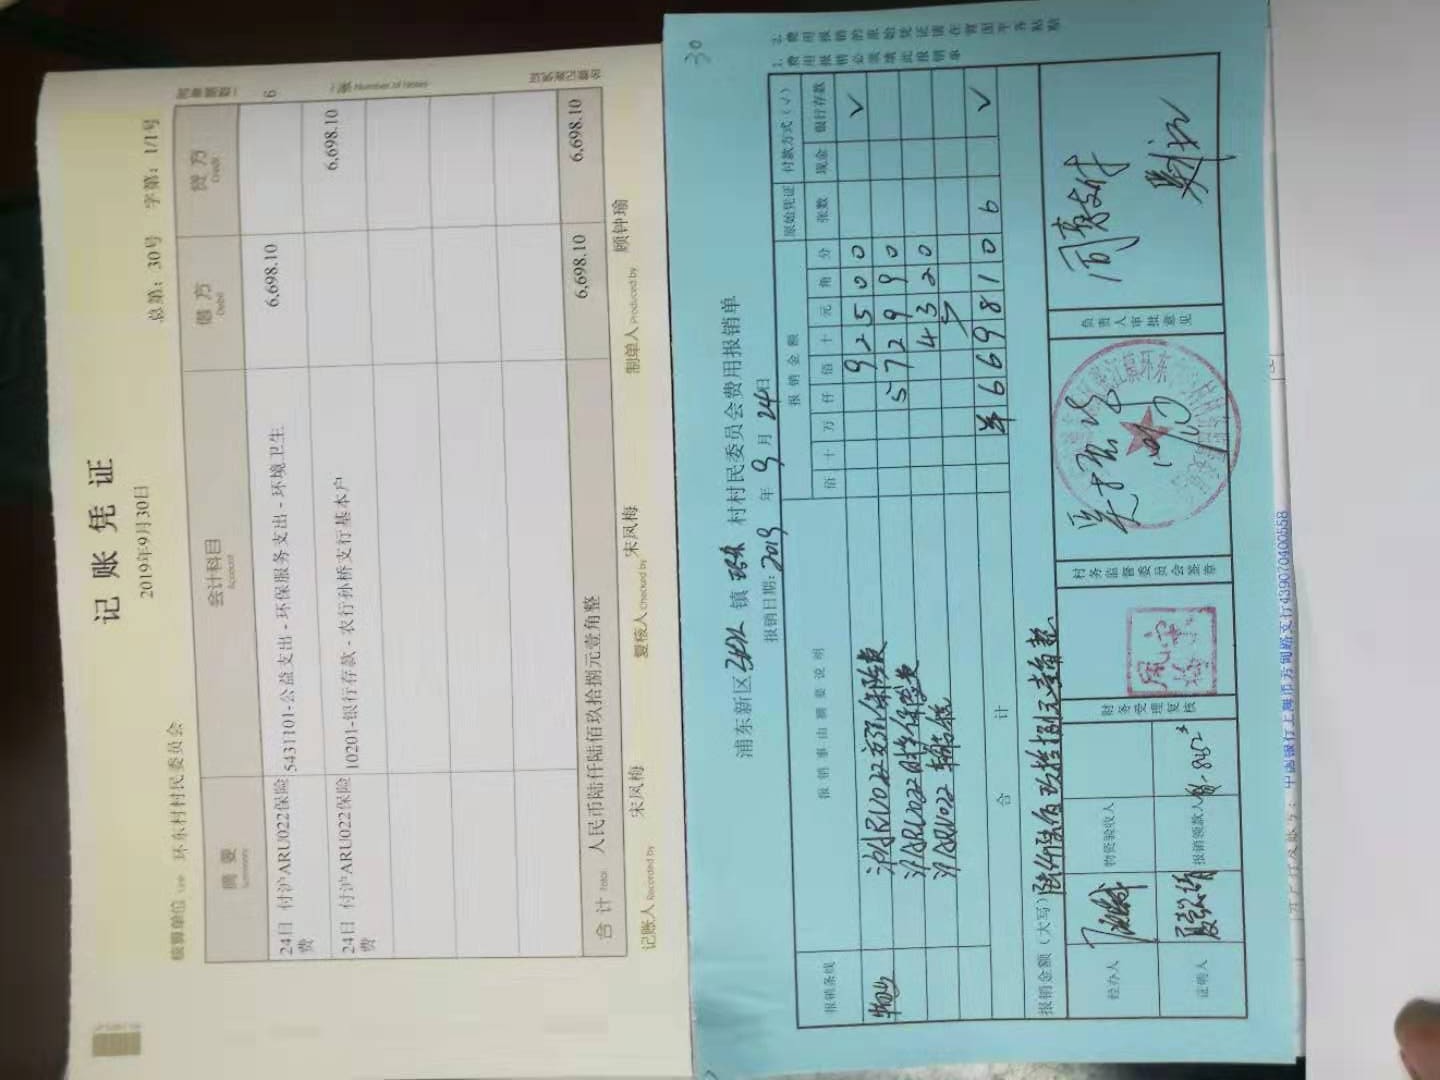 记账凭证
2019年9月30日
总第：30号 字第：1/1号
核算单位 Unit 环东村村民委员会
附单据数：
6
张 Number of Notes
摘要 Summary 会计科目 Account 借方 Debit 贷方 Credit
24日 付沪ARU022保险费 5431101-公益支出 - 环保服务支出 - 环境卫生 6,698.10
24日 付沪ARU022保险费 10201-银行存款 - 农行孙桥支行基本户 6,698.10
合计 Total 人民币陆仟陆佰玖拾捌元壹角整 6,698.10 6,698.10
记账人 Recorded by 宋凤梅 复核人 Checked by 宋凤梅 制单人 Produced by 顾钟瑜
30
浦东新区 镇 环东 村村民委员会费用报销单
报销日期：2019 年 9 月 24日
1、费用报销必须填此报销单
2、费用报销的原始凭证请在背面平齐粘贴
报销条线 报销事由摘要说明 报销金额 原始凭证张数 付款方式（√）
佰 十 万 仟 佰 十 元 角 分 现金 银行存款
沪ARU022交强保险费 92500 √
沪ARU022商业保险费 572990
沪ARU022车船税 4320
合计 669810 6 √
报销金额（大写） 陆仟陆佰玖拾捌元壹角整
经办人 物资验收人 财务受理复核 村务监督委员会签章 负责人审批意见
同意支付
宋凤梅
证明人 报销领款人
中国银行上海市方甸路支行439070400558